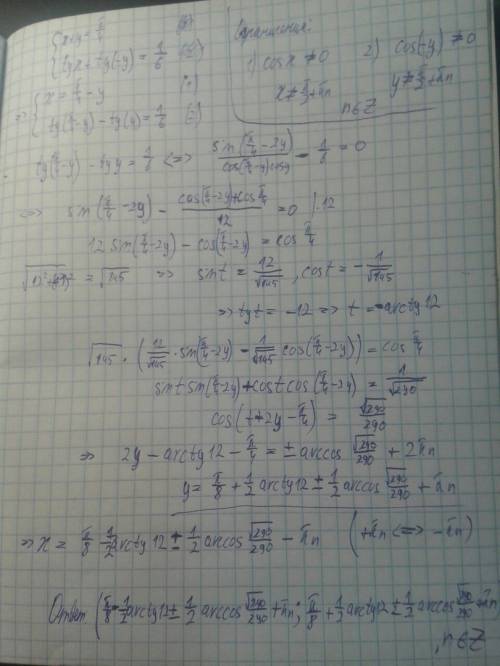 {x+y=π/4
{tgx+tg(-y)=1/6
Ограничения:
1) cosx≠0 2) cos(-y)≠0
x≠π/2+πn y≠π/2+πn
n∈Z
=> {x=π/4-y
{tg(π/4-y)-tg(y)=1/6
tg(π/4-y)-tgy=1/6 <=> sin(π/4-2y)/cos(π/4-y)cosy - 1/6=0
<=> sin(π/4-2y) - (cos(π/4-2y)+cosπ/4)/12 =0 |·12
12sin(π/4-2y)-cos(π/4-2y)=cosπ/4
=√145 => sint=12/√145, cost=-1/√145
=> tgt=-12 => t=-arctg12
√145·(12/√145·sin(π/4-2y)-1/√145cos(π/4-2y))=cosπ/4
sintsin(π/4-2y)+costcos(π/4-2y)=1/√290
cos(t+2y-π/4)=√290/290
=> 2y-arctg12-π/4=±arccos√290/290+2πn
y=π/8+1/2arctg12±1/2arccos√290/290+πn
=> x=π/8-1/2arctg12±1/2arccos√290/290-πn (+πn<=>-πn)
Ответ (π/8-1/2arctg12±1/2arccos√290/290+πn; π/8+1/2arctg12±1/2arccos√290/290+πn)
, n∈Z